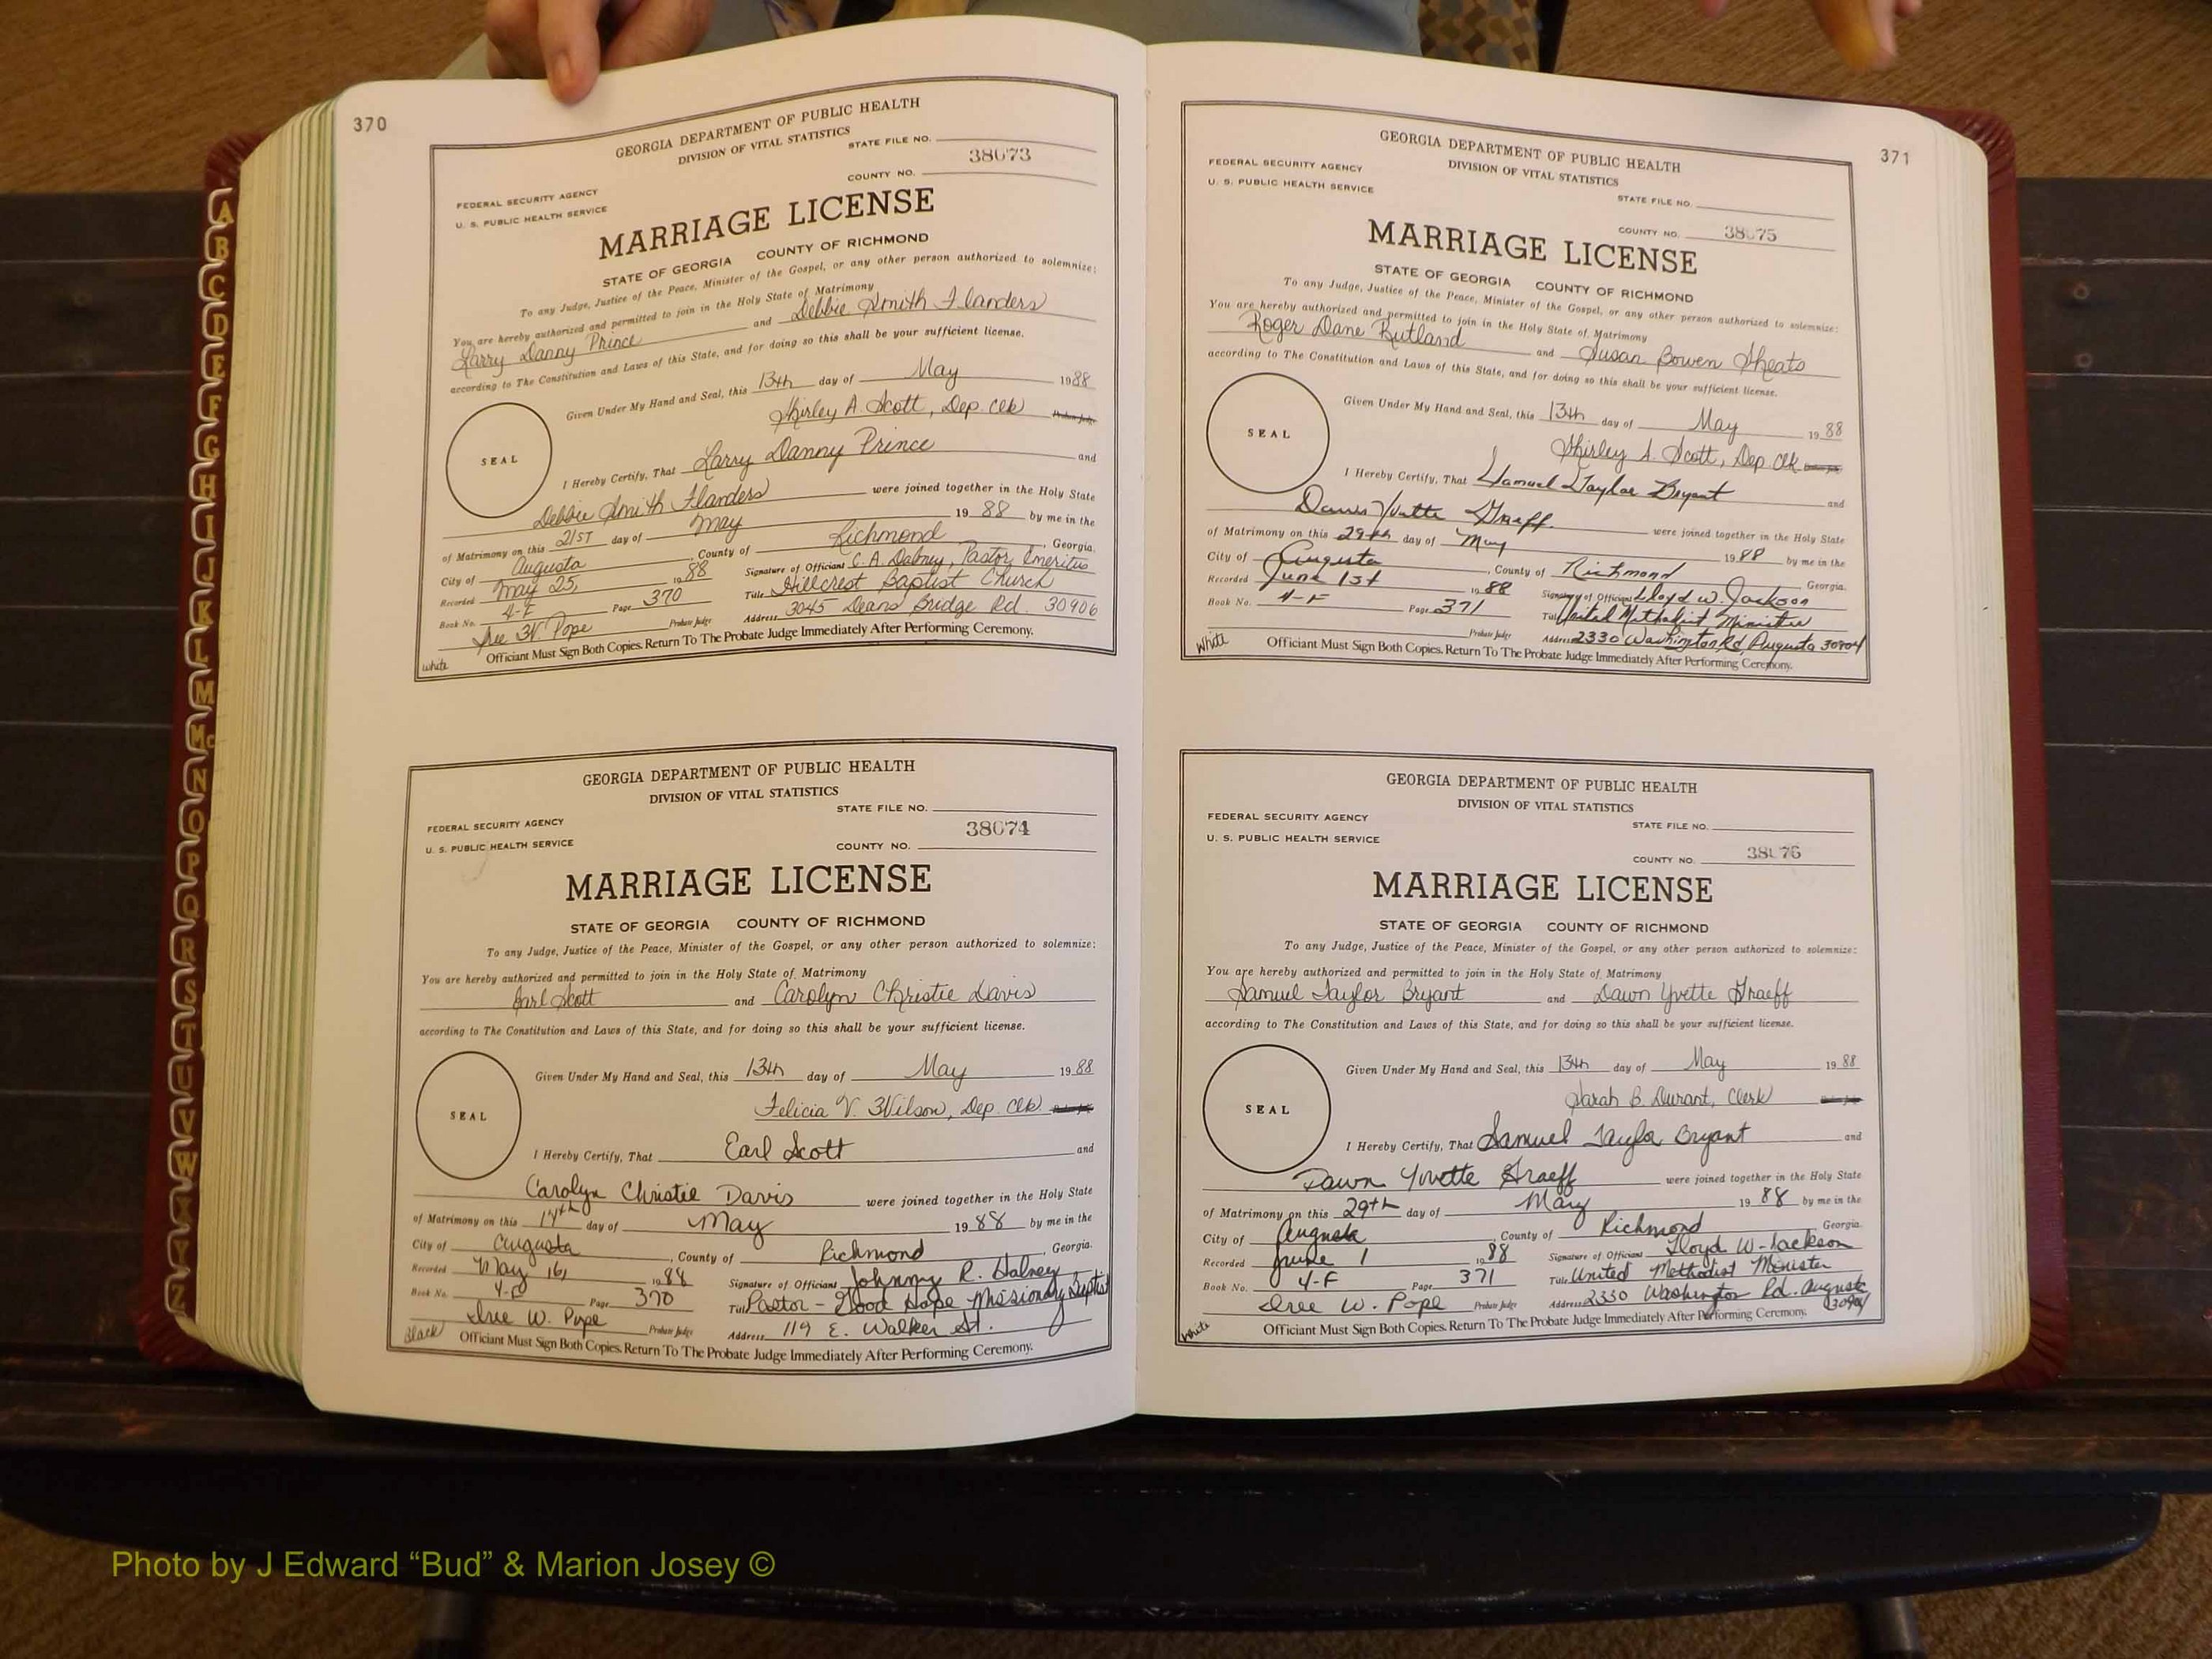 370
GEORGIA DEPARTMENT OF PUBLIC HEALTH
DIVISION OF VITAL STATISTICS
STATE FILE NO.
38073
FEDERAL SECURITY AGENCY
COUNTY NO.
U. S. PUBLIC HEALTH SERVICE
MARRIAGE LICENSE
STATE OF GEORGIA COUNTY OF RICHMOND
To any Judge, Justice of the Peace, Minister of the Gospel, or any other person authorized to solemnize:
You are hereby authorized and permitted to join in the Holy State of Matrimony
Larry Danny Prince and Debbie Smith Flanders
according to The Constitution and Laws of this State, and for doing so this shall be your sufficient license.
Given Under My Hand and Seal, this 13th day of May 1988
Shirley A. Scott, Dep. Clk Probate Judge
SEAL
I Hereby Certify, That Larry Danny Prince and
Debbie Smith Flanders were joined together in the Holy State
of Matrimony on this 21ST day of May 19 88 by me in the
City of Augusta, County of Richmond, Georgia.
Recorded May 25, 1988 Signature of Officiant C. A. Dabney, Pastor Emeritus
Book No. 4-F Page 370 Title Hillcrest Baptist Church
W. Pope Probate Judge Address 3045 Deans Bridge Rd. 30906
white Officiant Must Sign Both Copies. Return To The Probate Judge Immediately After Performing Ceremony.
GEORGIA DEPARTMENT OF PUBLIC HEALTH
DIVISION OF VITAL STATISTICS
STATE FILE NO.
FEDERAL SECURITY AGENCY
38074
U. S. PUBLIC HEALTH SERVICE
COUNTY NO.
MARRIAGE LICENSE
STATE OF GEORGIA COUNTY OF RICHMOND
To any Judge, Justice of the Peace, Minister of the Gospel, or any other person authorized to solemnize:
You are hereby authorized and permitted to join in the Holy State of Matrimony
Earl Scott and Carolyn Christie Davis
according to The Constitution and Laws of this State, and for doing so this shall be your sufficient license.
Given Under My Hand and Seal, this 13th day of May 1988
Felicia V. Wilson, Dep. Clk
SEAL
I Hereby Certify, That Earl Scott and
Carolyn Christie Davis were joined together in the Holy State
of Matrimony on this 14th day of May 19 88 by me in the
City of Augusta, County of Richmond, Georgia.
Recorded May 16, 1988 Signature of Officiant Johnny R.
Book No. 4-F Page 370 Title Pastor - Good Hope Missionary Baptist
W. Pope Probate Judge Address 119 E. Walker St.
Black Officiant Must Sign Both Copies. Return To The Probate Judge Immediately After Performing Ceremony.
371
GEORGIA DEPARTMENT OF PUBLIC HEALTH
DIVISION OF VITAL STATISTICS
FEDERAL SECURITY AGENCY
U. S. PUBLIC HEALTH SERVICE
STATE FILE NO.
COUNTY NO. 38075
MARRIAGE LICENSE
STATE OF GEORGIA COUNTY OF RICHMOND
To any Judge, Justice of the Peace, Minister of the Gospel, or any other person authorized to solemnize:
You are hereby authorized and permitted to join in the Holy State of Matrimony
Roger Dane Rutland and Susan Bowen Sheats
according to The Constitution and Laws of this State, and for doing so this shall be your sufficient license.
Given Under My Hand and Seal, this 13th day of May 1988
Shirley A. Scott, Dep. Clk
SEAL
I Hereby Certify, That Samuel Taylor Bryant and
Dawn Yvette Graeff were joined together in the Holy State
of Matrimony on this 29th day of May 1988 by me in the
City of Augusta, County of Richmond, Georgia.
Recorded June 1st 1988 Signature of Officiant Lloyd W. Jackson
Book No. 4-F Page 371 Title United Methodist Minister
Probate Judge Address 2330 Washington Rd, Augusta 30904
White Officiant Must Sign Both Copies. Return To The Probate Judge Immediately After Performing Ceremony.
GEORGIA DEPARTMENT OF PUBLIC HEALTH
DIVISION OF VITAL STATISTICS
FEDERAL SECURITY AGENCY
STATE FILE NO.
U. S. PUBLIC HEALTH SERVICE
COUNTY NO. 38076
MARRIAGE LICENSE
STATE OF GEORGIA COUNTY OF RICHMOND
To any Judge, Justice of the Peace, Minister of the Gospel, or any other person authorized to solemnize:
You are hereby authorized and permitted to join in the Holy State of Matrimony
Samuel Taylor Bryant and Dawn Yvette Graeff
according to The Constitution and Laws of this State, and for doing so this shall be your sufficient license.
Given Under My Hand and Seal, this 13th day of May 1988
Sarah B. Durant, Clerk
SEAL
I Hereby Certify, That Samuel Taylor Bryant and
Dawn Yvette Graeff were joined together in the Holy State
of Matrimony on this 29th day of May 1988 by me in the
City of Augusta, County of Richmond Georgia.
Recorded June 1 1988 Signature of Officiant Lloyd W. Jackson
Book No. 4-F Page 371 Title United Methodist Minister
W. Pope Probate Judge Address 2330 Washington Rd. Augusta
30904
White Officiant Must Sign Both Copies. Return To The Probate Judge Immediately After Performing Ceremony.
A
B
C
D
E
F
G
H
I
J
K
L
M
Mc
N
O
P
Q
R
S
T
U
V
W
X
Y
Z
Photo by J Edward “Bud” & Marion Josey ©